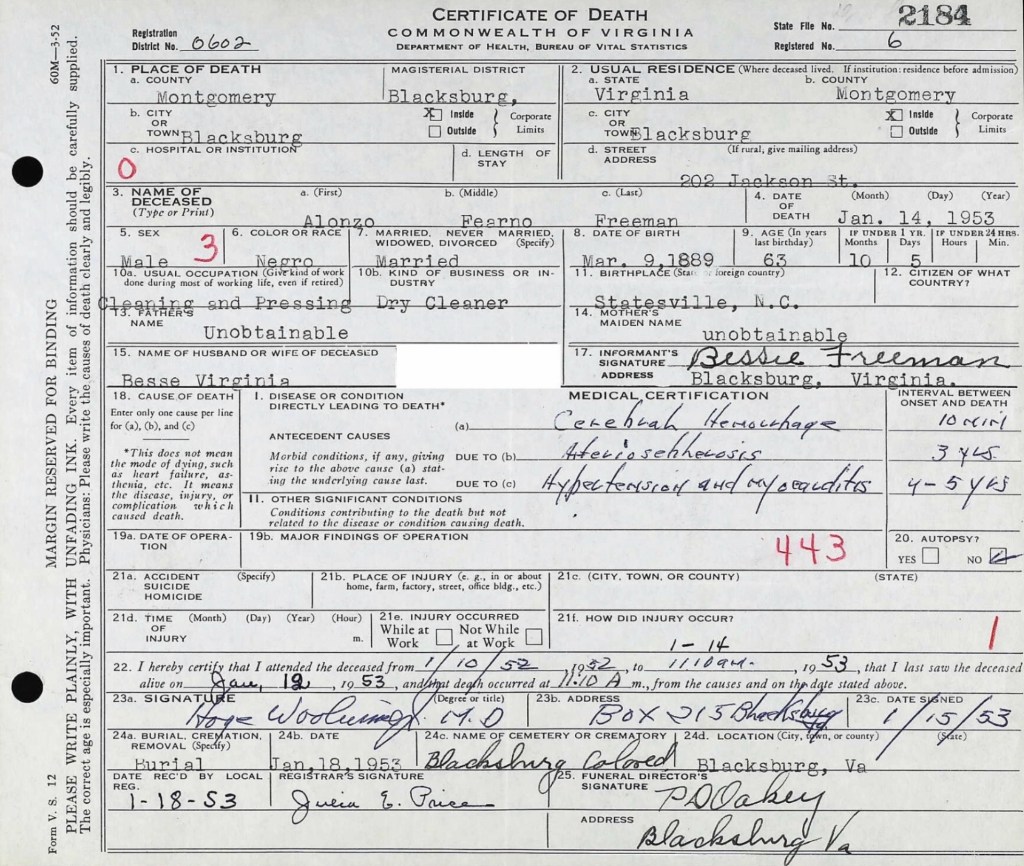 CERTIFICATE OF DEATH
COMMONWEALTH OF VIRGINIA
DEPARTMENT OF HEALTH, BUREAU OF VITAL STATISTICS
Registration District No. 0602
State File No. 2184
Registered No. 6
60M—3-52
Form V. S. 12
MARGIN RESERVED FOR BINDING
PLEASE WRITE PLAINLY, WITH UNFADING INK. Every item of information should be carefully supplied.
The correct age is especially important. Physicians: Please write the causes of death clearly and legibly.
1. PLACE OF DEATH
a. COUNTY
Montgomery
MAGISTERIAL DISTRICT
Blacksburg,
b. CITY OR TOWN Blacksburg
X Inside
Outside
Corporate Limits
c. HOSPITAL OR INSTITUTION
0
d. LENGTH OF STAY
2. USUAL RESIDENCE (Where deceased lived. If institution: residence before admission)
a. STATE
Virginia
b. COUNTY
Montgomery
c. CITY OR TOWN Blacksburg
X Inside
Outside
Corporate Limits
d. STREET ADDRESS (If rural, give mailing address)
202 Jackson St.
3. NAME OF DECEASED (Type or Print)
a. (First) b. (Middle) c. (Last)
Alonzo Fearno Freeman
4. DATE OF DEATH (Month) (Day) (Year)
Jan. 14, 1953
5. SEX
Male 3
6. COLOR OR RACE
Negro
7. MARRIED, NEVER MARRIED, WIDOWED, DIVORCED (Specify)
Married
8. DATE OF BIRTH
Mar. 9,1889
9. AGE (In years last birthday)
63
IF UNDER 1 YR. Months Days
10 5
IF UNDER 24 HRS. Hours Min.
10a. USUAL OCCUPATION (Give kind of work done during most of working life, even if retired)
Cleaning and Pressing
10b. KIND OF BUSINESS OR INDUSTRY
Dry Cleaner
11. BIRTHPLACE (State or foreign country)
Statesville, N.C.
12. CITIZEN OF WHAT COUNTRY?
13. FATHER'S NAME
Unobtainable
14. MOTHER'S MAIDEN NAME
unobtainable
15. NAME OF HUSBAND OR WIFE OF DECEASED
Besse Virginia
17. INFORMANT'S SIGNATURE Bessie Freeman
ADDRESS Blacksburg, Virginia.
18. CAUSE OF DEATH
Enter only one cause per line for (a), (b), and (c)
*This does not mean the mode of dying, such as heart failure, asthenia, etc. It means the disease, injury, or complication which caused death.
MEDICAL CERTIFICATION
INTERVAL BETWEEN ONSET AND DEATH
I. DISEASE OR CONDITION DIRECTLY LEADING TO DEATH*
(a) Cerebrah Hemourhage 10 min
ANTECEDENT CAUSES
Morbid conditions, if any, giving rise to the above cause (a) stating the underlying cause last.
DUE TO (b) Arteriosehherosis 3 yrs
DUE TO (c) Hypertension and myocarditis 4-5 yrs
II. OTHER SIGNIFICANT CONDITIONS
Conditions contributing to the death but not related to the disease or condition causing death.
19a. DATE OF OPERATION
19b. MAJOR FINDINGS OF OPERATION
443
20. AUTOPSY?
YES NO
21a. ACCIDENT SUICIDE HOMICIDE (Specify)
21b. PLACE OF INJURY (e. g., in or about home, farm, factory, street, office bldg., etc.)
21c. (CITY, TOWN, OR COUNTY) (STATE)
21d. TIME OF INJURY (Month) (Day) (Year) (Hour) m.
21e. INJURY OCCURRED
While at Work Not While at Work
21f. HOW DID INJURY OCCUR?
1
1-14
22. I hereby certify that I attended the deceased from 1/10/52, 1952, to 11:10am., 1953, that I last saw the deceased
alive on Jan, 12, 1953, and that death occurred at 11:10 A m., from the causes and on the date stated above.
23a. SIGNATURE (Degree or title)
M.D
23b. ADDRESS
Box 215 Blacksburg
23c. DATE SIGNED
1/15/53
24a. BURIAL, CREMATION, REMOVAL (Specify)
Burial
24b. DATE
Jan,18,1953
24c. NAME OF CEMETERY OR CREMATORY
Blacksburg Colored
24d. LOCATION (City, town, or county) (State)
Blacksburg, Va
DATE REC'D BY LOCAL REG.
1-18-53
REGISTRAR'S SIGNATURE
Julia E. Price
25. FUNERAL DIRECTOR'S SIGNATURE
P D Oakey
ADDRESS
Blacksburg Va